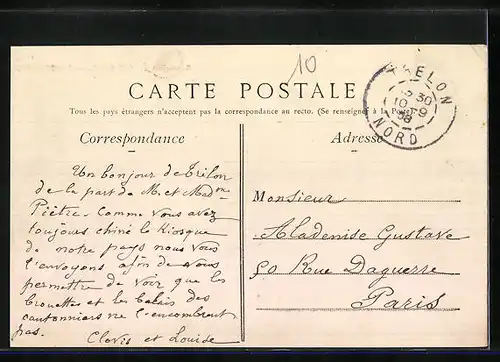 10
CARTE POSTALE
Tous les pays étrangers n'acceptent pas la correspondance au recto. (Se renseigner à la Poste)
TRELON
30
10-9
08
NORD
Correspondance
Adresse
Un bonjour de Trélon
de la part de M. et Madme
Piètre. Comme vous avez
toujours chiné le Kiosque
de notre pays nous vous
l'envoyons afin de vous
permettre de voir que les
brouettes et les balais des
cantonniers ne l'encombrent
pas.
Clovis et Louise
Monsieur
Aladenise Gustave
50 Rue Daguerre
Paris